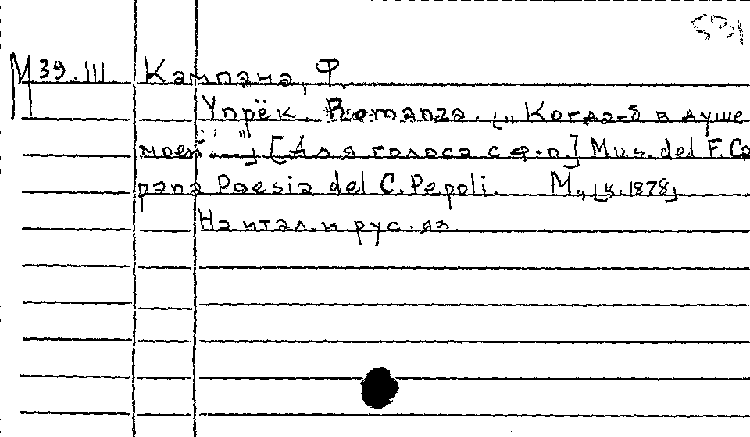 531
М 39.III Кампана, Ф.
Упрёк. Romanza. [„Когда-б в душе
моей..."] [Для голоса с ф-п] Mus. del F. Ca
pana Poesia del C. Pepoli. М., [ц. 1878]
На итал. и рус. яз.